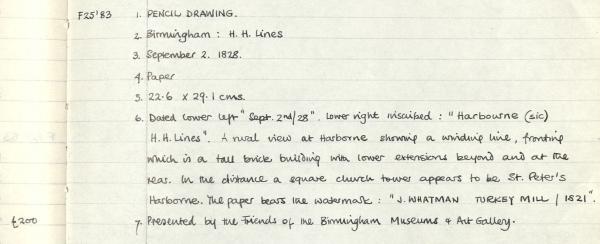 F25'83 1. PENCIL DRAWING.
2. Birmingham : H. H. Lines
3. September 2. 1828.
4. Paper
5. 22.6 x 29.1 cms.
6. Dated lower left "Sept. 2nd/28". Lower right inscribed : "Harbourne (sic)
H.H. Lines". A rural view at Harborne showing a winding line, fronting
which is a tall brick building with lower extensions beyond and at the
rear. In the distance a square church tower appears to be St. Peter's
Harborne. The paper bears the watermark : "J. WHATMAN TURKEY MILL / 1821".
£200 7. Presented by the Friends of the Birmingham Museums & Art Gallery.